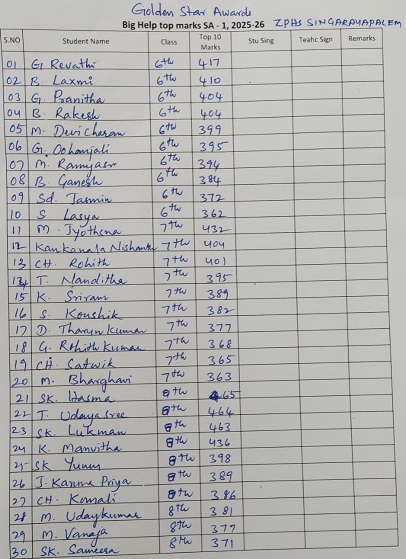 Golden Star Awards
Big Help top marks SA - 1, 2025-26 ZPHS SINGARAYAPALEM
S.NO Student Name Class Top 10 Marks Stu Sing Teahc Sign Remarks
01 G. Revathi 6th 417
02 B. Laxmi 6th 410
03 G. Pranitha 6th 404
04 B. Rakesh 6th 404
05 M. Devi charan 6th 399
06 G. Oohanjali 6th 395
07 M. Ramyasri 6th 394
08 B. Ganesh 6th 384
09 Sd. Jasmin 6th 372
10 S Lasya 6th 362
11 M. Jyothsna 7th 432
12 Kankanala Nishanth 7th 404
13 CH. Rohith 7th 401
14 T. Nanditha 7th 395
15 K. Sriram 7th 389
16 S. Koushik 7th 382
17 D. Tharun Kumar 7th 377
18 G. Rohith Kumar 7th 368
19 CH. Satwik 7th 365
20 M. Bharghavi 7th 363
21 SK. Hasma 8th 465
22 T. Udaya Sree 8th 464
23 SK. Lukman 8th 463
24 K. Manvitha 8th 436
25 SK Yunus 8th 398
26 J. Karuna Priya 8th 389
27 CH. Komali 8th 386
28 M. Uday kumar 8th 381
29 M. Vanaja 8th 377
30 SK. Sameera 8th 371